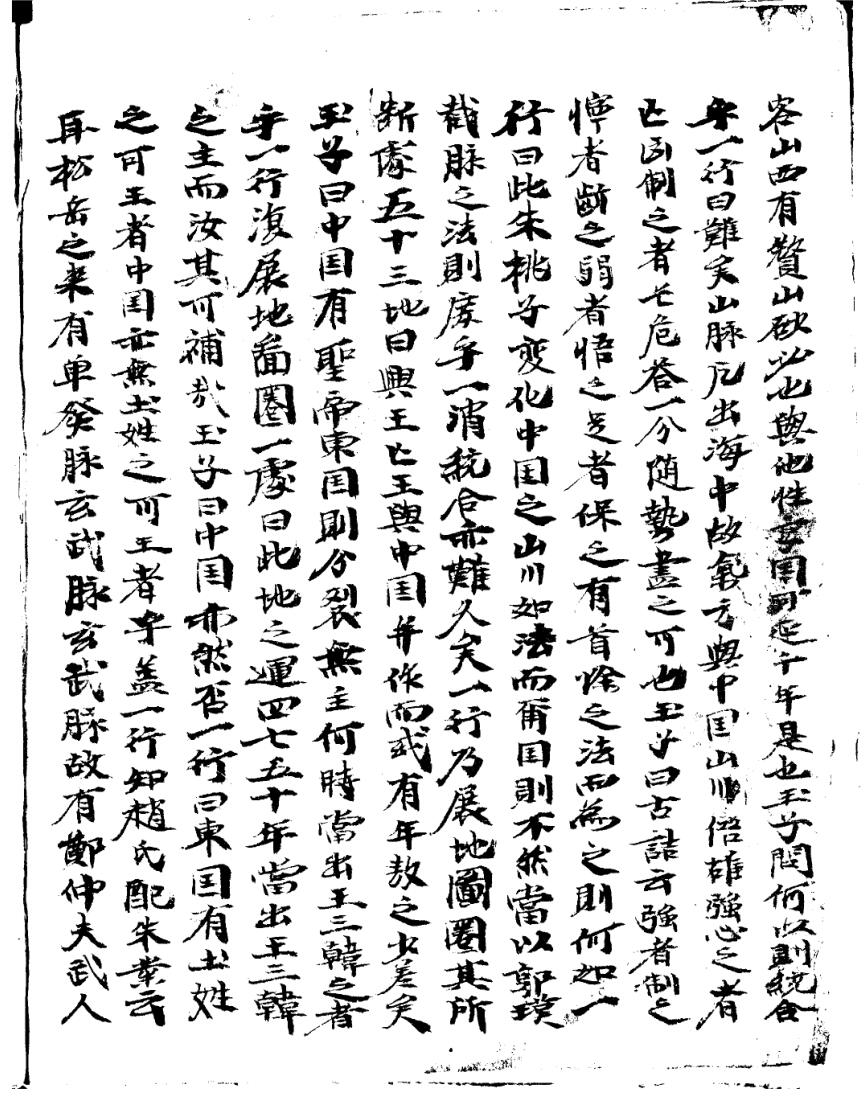 客山西有贅山砍以也與他性字国可延千年是也玉子問何以則統合
乎一行曰難矣山脉凡出海中故氣方與中国山川倍雄強心之者
亡凶制之者亡危答一分随勢盡之可也玉子曰古詰云強者制之
悖者斷之弱者悟之足者保之有首除之法而為之則何如一
行曰此朱桃子変化中国之山川如法而爾国則不然當以郭璞
截脉之法則庶乎一消統合亦難久矣一行乃展地圖圈其所
断處五十三地曰興王亡王與中国并作而或有年敖之少差矣
玉子曰中国有聖帝東国則分裂無主何時當出王三韓之者
乎一行復展地啚圈一處曰此地之運四七五十年當出王三韓
之主而汝其可補㢤玉子曰中国亦然否一行曰東国有土姓
之可王者中国亦無土姓之可王者乎盖一行知趙氏配朱業云
耳松岳之来有单癸脉玄武脉玄武脉故有鄭仲夫武人